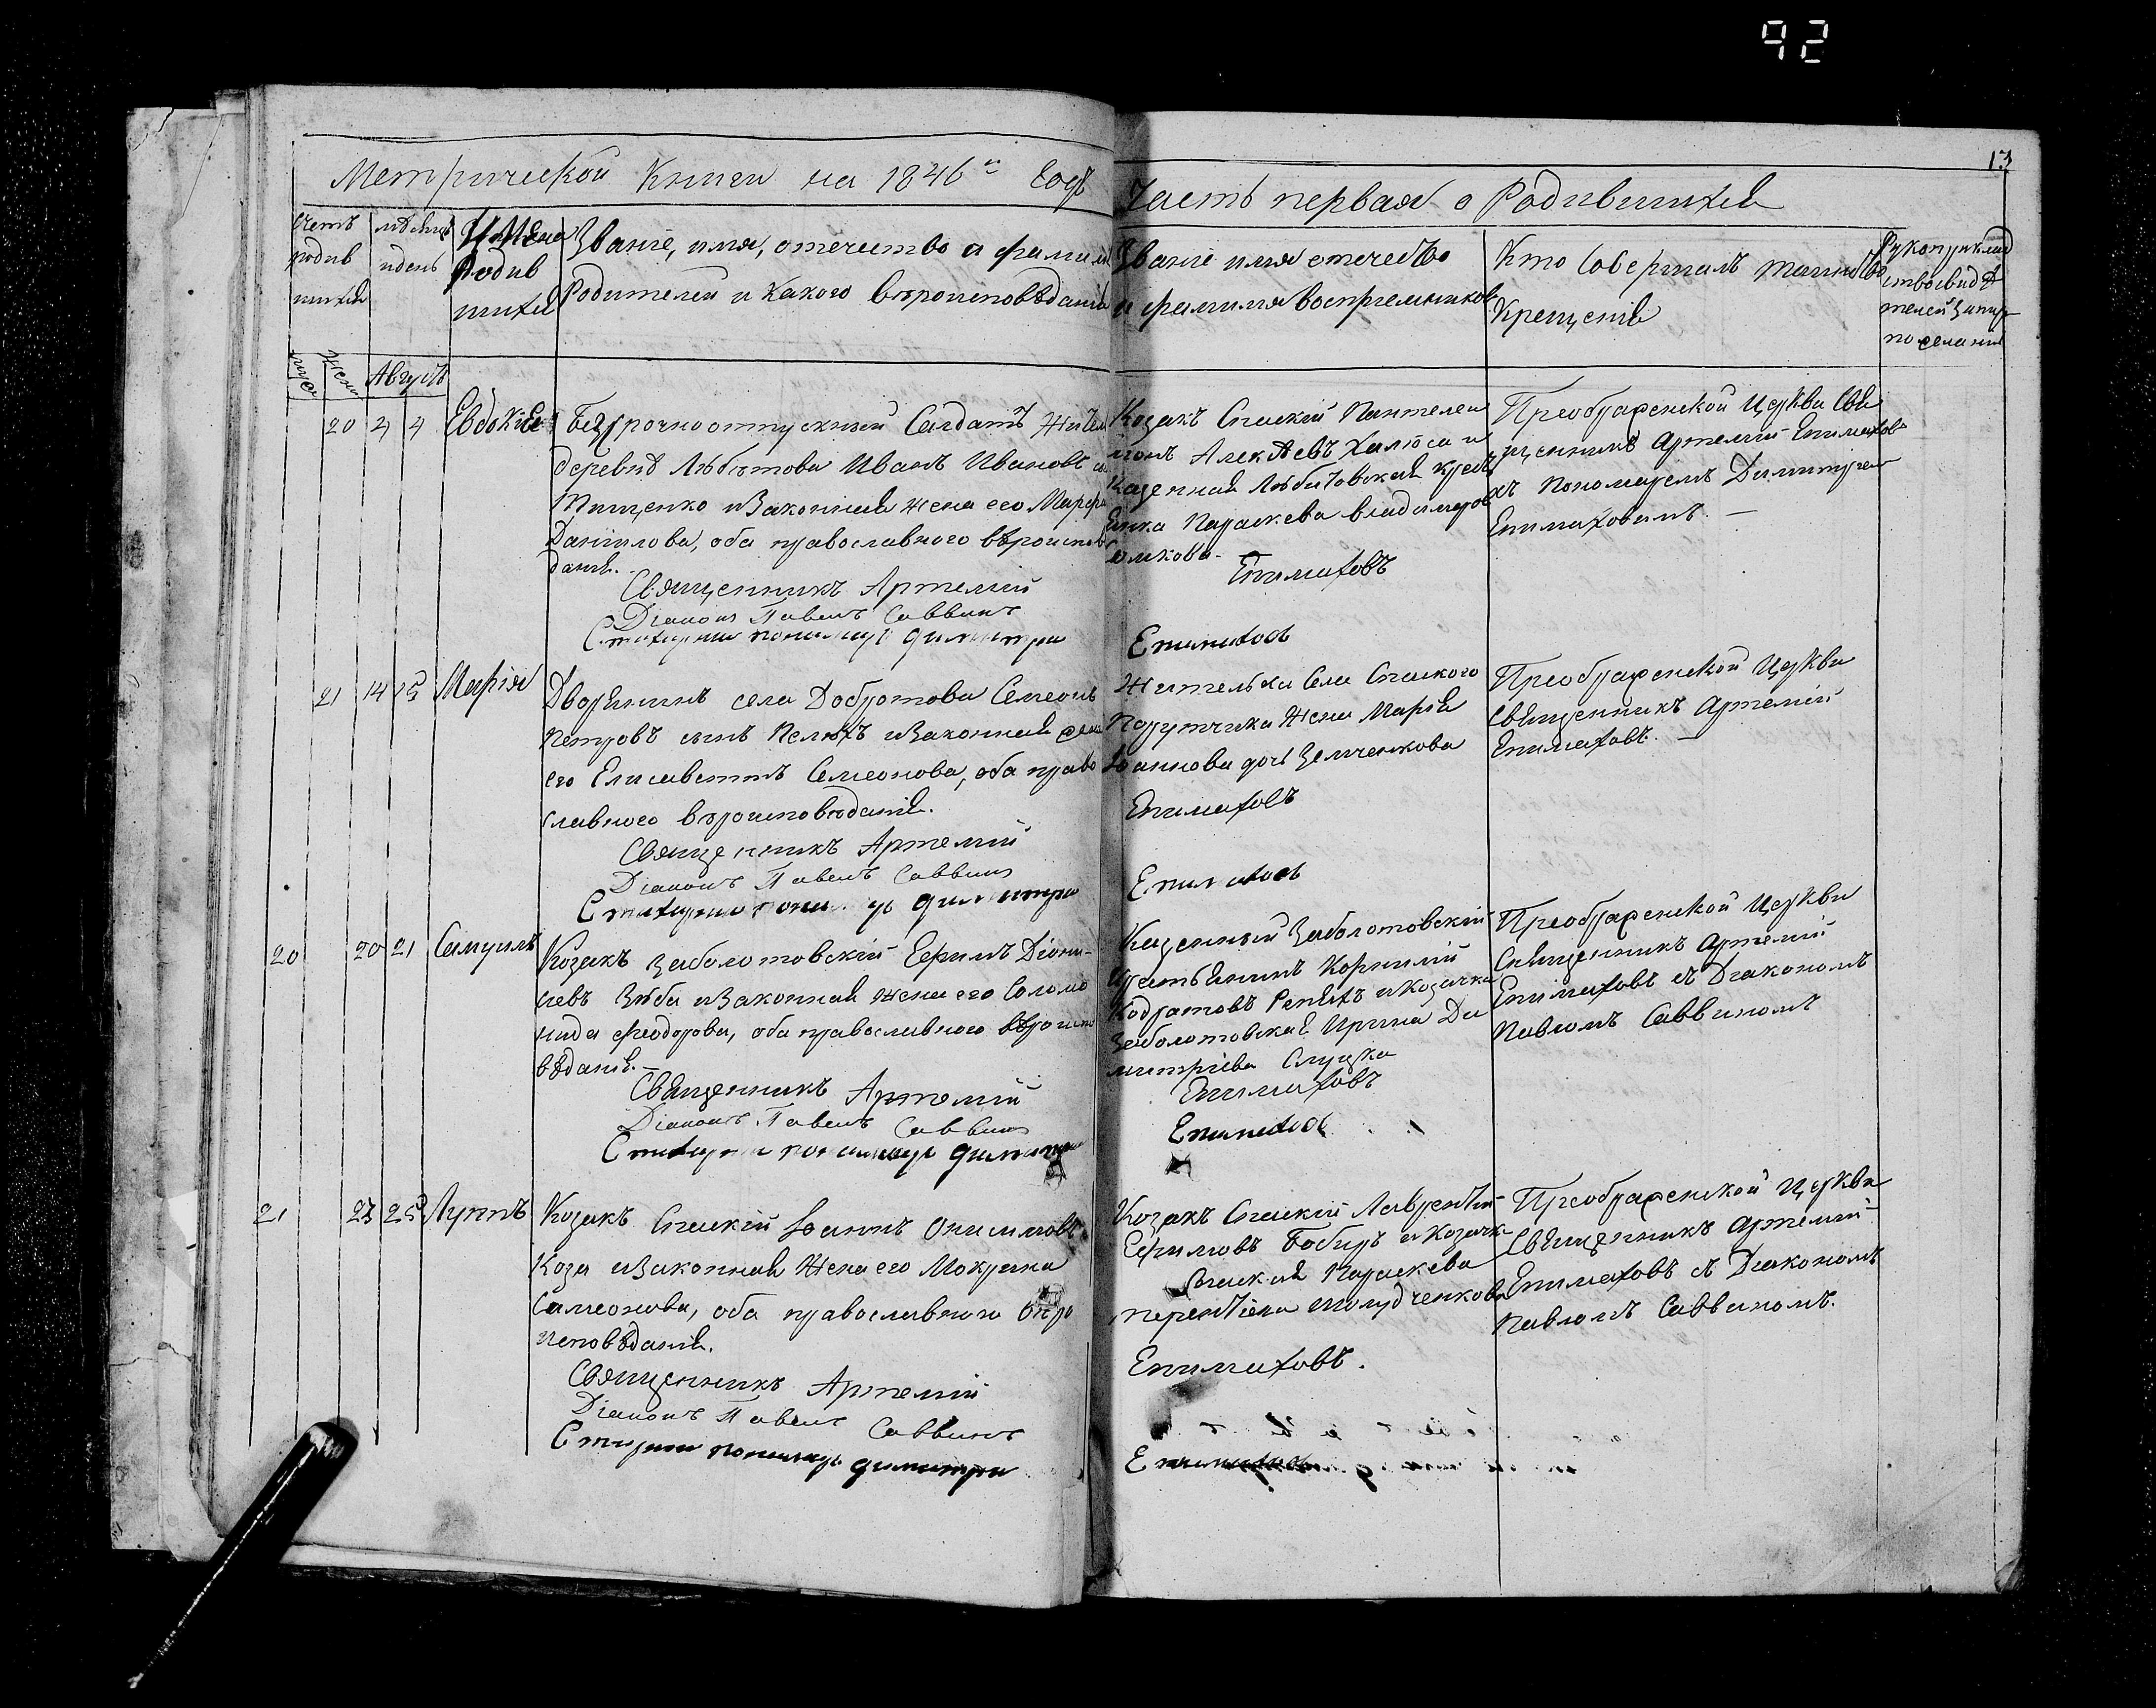 92
13
Метрической Книги на 1846й Годъ
Часть первая о Родившихся
Счетъ родив шихся
месяцъ и день
Имена Родив шихся
Званіе, имя, отечество и фамилія
Родителей и какого вѣроисповѣданія
Званіе имя отечество
и фамилія воспріемниковъ
Кто совершалъ таинство
Крещенія
Рукоприклад
ство свидѣ
телей записи
по желанію
Августъ
20 4 Евдокія
Безсрочноотпускный Салдатъ Жител
деревнѣ Любѣтова Иванъ Ивановъ
Тищенко и Законная жена его Марфа
Даніилова, оба православного вѣроисповѣ
данія.
Священникъ Артемій
Діаконъ Павелъ Саввинъ
Стихарный пономарь Димитри
Козакъ Спаскій Пантелеи
монъ Алексѣевъ Халюса и
Казенная Любитовская кресть
янка Параскева Владимиров
Епимаховъ
Епимаховъ
Преображенской Церкви Свя
щенникъ Артемій Епимаховъ
съ Пономаремъ Димитрием
Епимаховымъ. —
21 14 15 Марія
Дворянинъ села Добротова Семеонъ
Петровъ сынъ Пелюхъ и Законная жена
его Елисаветтъ Семеонова, оба право
славного вѣроисповѣданія.
Священникъ Артемій
Діаконъ Павелъ Саввинъ
Стихарный пономарь Димитри
Жителька Села Спаского
Порутчика Жена Марія
Іоаннова дочь Зенченкова
Епимаховъ
Епимаховъ
Преображенской Церкви
Священникъ Артемій
Епимаховъ. —
20 20 21 Самуилъ
Козакъ Заболотовскій Ефимъ Діони-
сіевъ Зюба и Законная жена его Соломо
нида Феодорова, оба православного вѣроиспо
вѣданія.—
Священникъ Артемій
Діаконъ Павелъ Саввинъ
Стихарный пономарь Димитри
Казенный Заболотовскій
Крестьянинъ Корнилій
Кодратовъ Репяхъ и Козачка
Заболотовская Ирина Ди
митріева Слуцка
Епимаховъ
Епимаховъ
Преображенской Церкви
Священникъ Артемій
Епимаховъ съ Діакономъ
Павломъ Саввиномъ
21 23 25 Луппъ
Козакъ Спаскій Іоаннъ Онисимовъ
Коза и Законная Жена его Мокрина
Симеонова, оба православного вѣро
исповѣданія.
Священникъ Артемій
Діаконъ Павелъ Саввинъ
Стихарный пономарь Димитри
Козакъ Спаскій Лаврентій
Ефимовъ Бобырь и Козачка
Спаская Параскева
Терентіева
Епимаховъ.
Епимаховъ
Преображенской Церкви
Священникъ Артемій
Епимаховъ съ Діакономъ
Павломъ Саввиномъ.